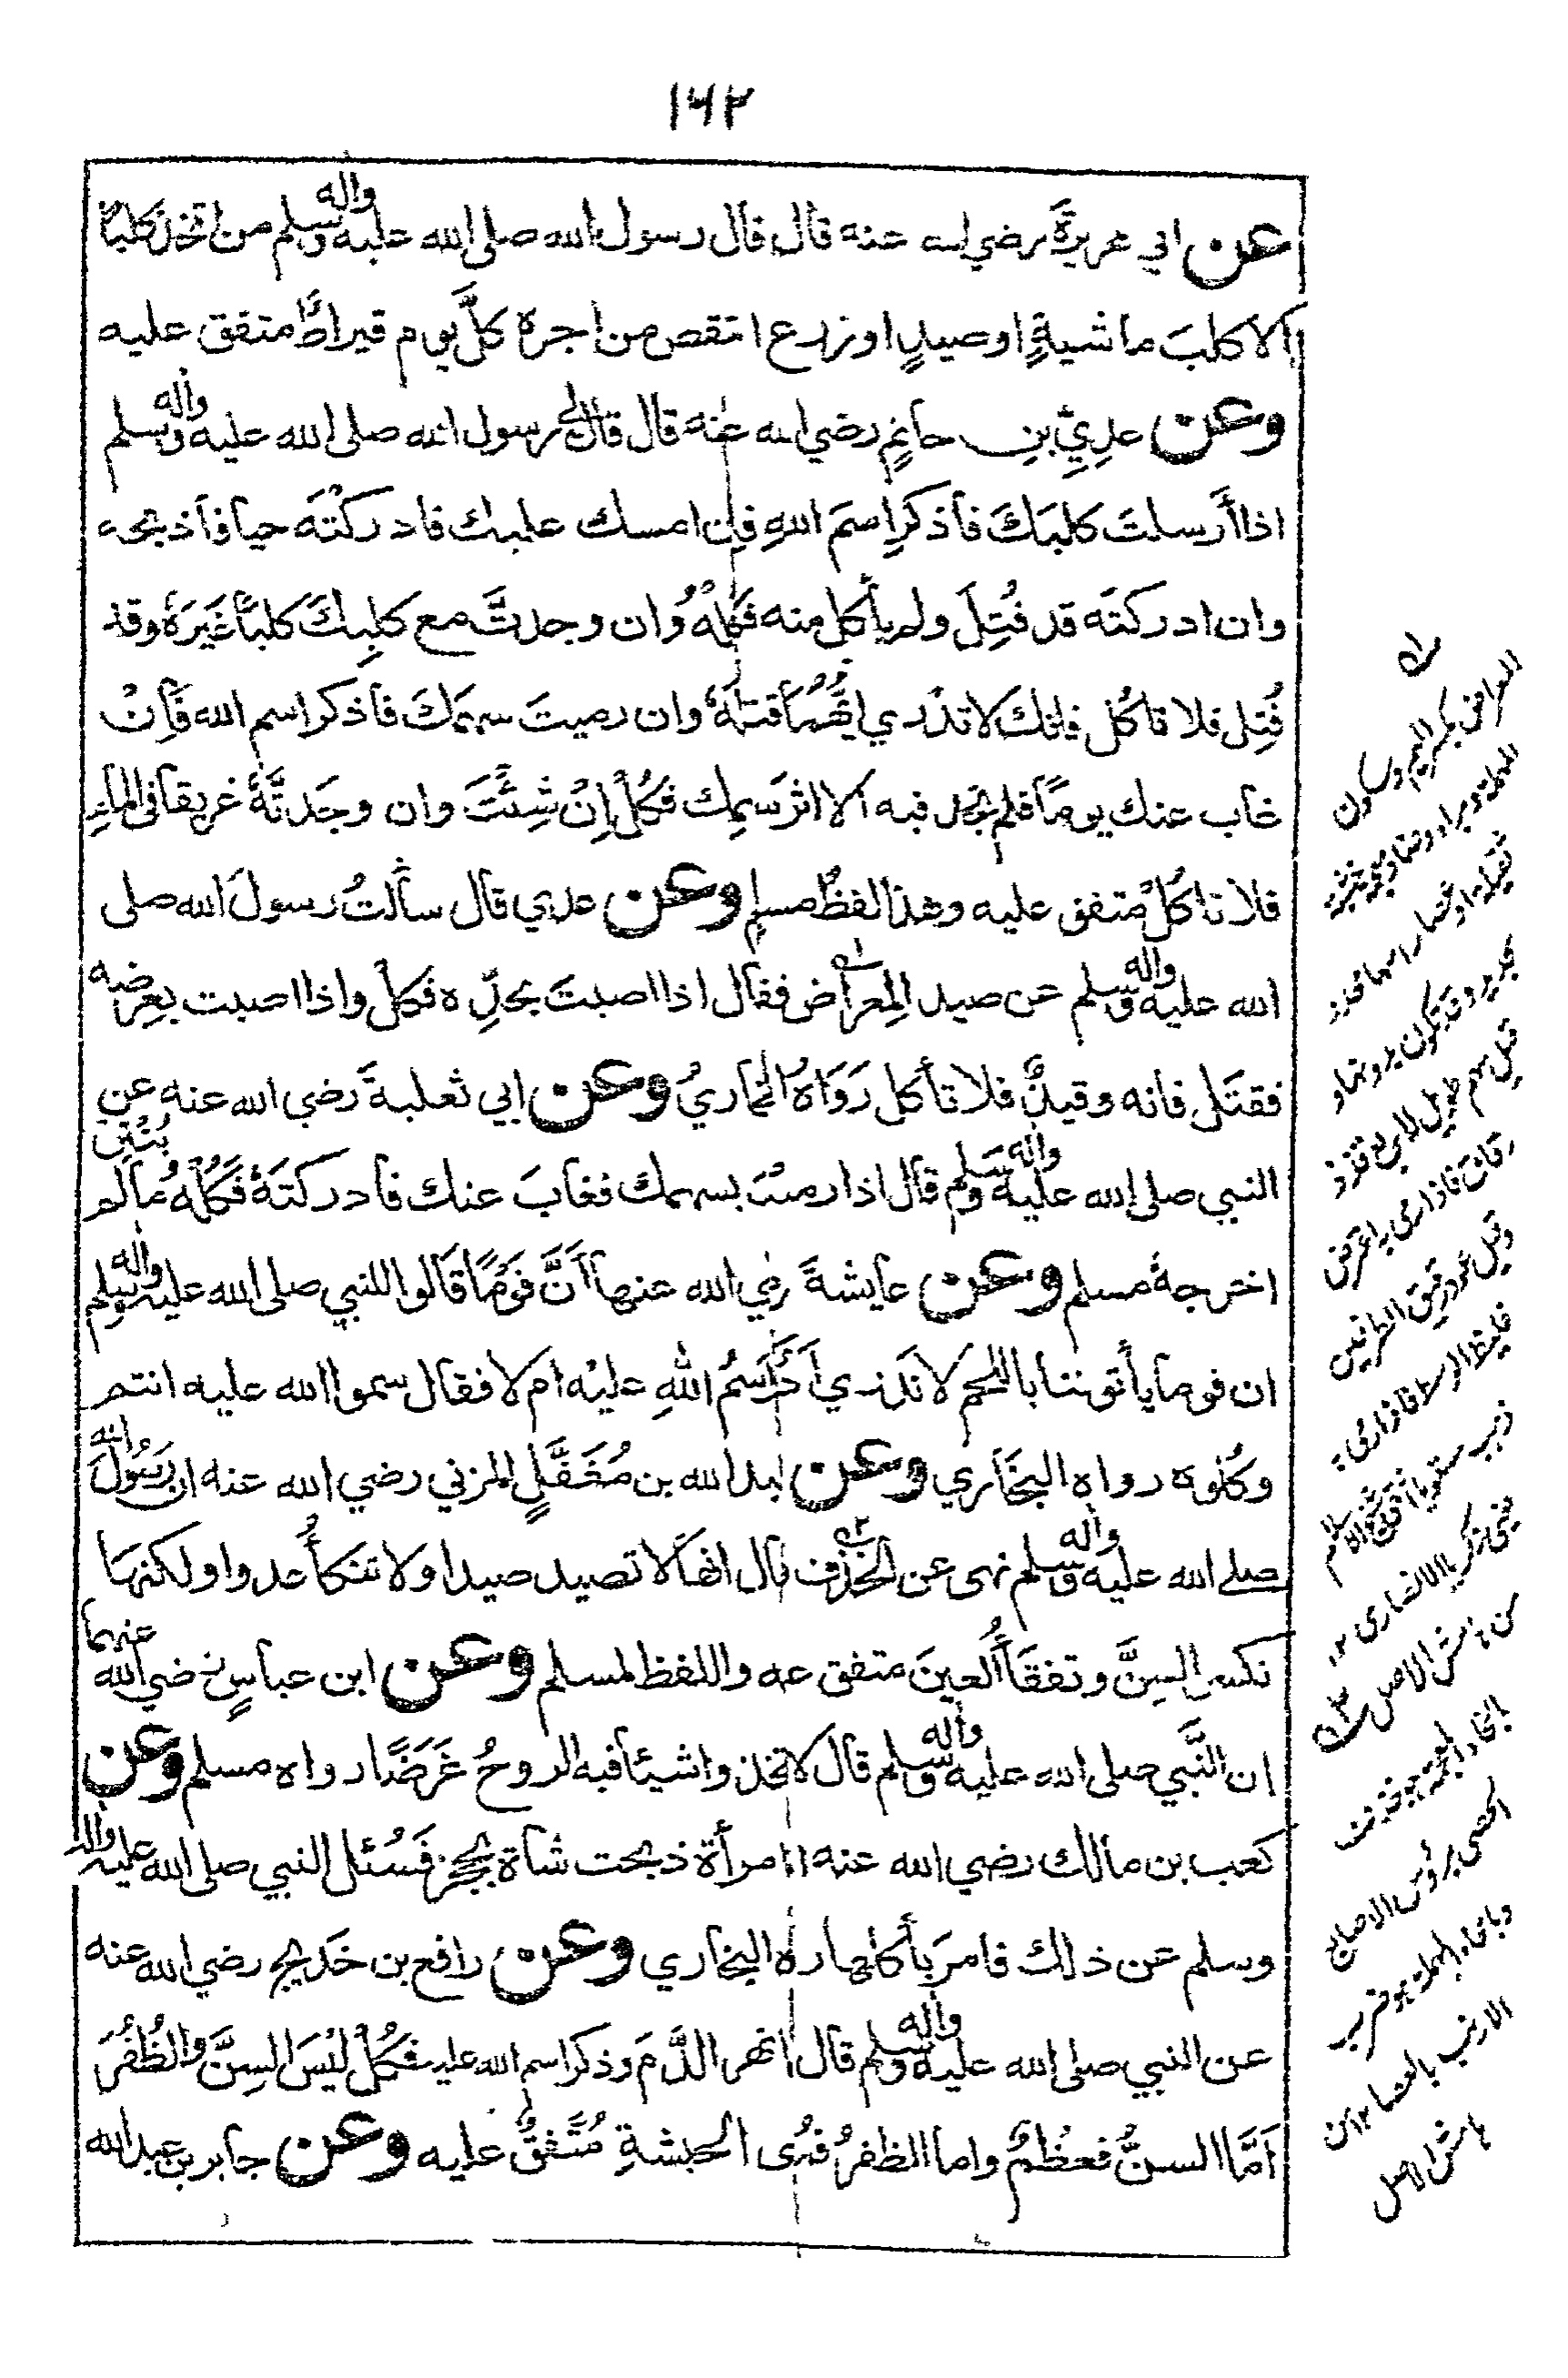 ١٦٢
عن ابي هريرةَ رضي الله عنه قال قال رسول الله صلى الله عليه واله وسلم من اتخذ كلبًا
الا كلبَ ماشيةٍ او صيدٍ او زرع انتقص من اجره كلَّ يوم قيراطٌ متفق عليه
وعن عدِيِّ بنِ حاتمٍ رضي الله عنه قال قال لي رسول الله صلى الله عليه واله وسلم
اذا أَرسلتَ كلبَكَ فاذكرِ اسمَ اللهِ فإن امسك عليك فادركْتَه حيا فاذبحه
وان ادركتَه قد قُتِلَ ولم يأكل منه فكلْهُ وان وجدتَّ مع كلبِكَ كلبًا غَيرَهُ وقد
قُتِل فلا تاكُل فانك لا تدْري ايُّهُمَا قتلَهُ وان رميتَ سهمَكَ فاذكر اسم الله فَاِنْ
غاب عنك يومًا فلم تجد فيه الا اثرَ سَهمِك فكُلْ اِنْ شِئْتَ وان وجَدتَّهُ غريقا فى الماءِ
فلا تاكُلْ متفق عليه وهذا لفظُ مسلمٍ وعن عدي قال سألتُ رسولَ الله صلى
الله عليه واله وسلم عن صيد المِعراض فقال اذا اصبتَ بحدِّه فكلْ واذا اصبت بعرضه
فقتَل فانه وقيذٌ فلا تأكل رَوَاهُ البخاريُ وعن ابي ثعلبةَ رضي الله عنه عن
النبي صلى الله عليه واله وسلم قال اذا رميتَ بسهمك فغابَ عنك فادركتَهُ فَكُلْهُ مالم يُنْتِن
اخرجهُ مسلم وعن عايشةَ رضي الله عنها اَنَّ قومًا قَالوا للنبي صلى الله عليه واله وسلم
ان قوما يأتوننا باللحم لا نَدْري اَذُكِرَاسمُ اللهِ عليْه ام لا فقال سموا الله عليه انتم
وكُلوه رواه البخَاري وعن عبد الله بن مُغَفَّلٍ المزني رضي الله عنه ان رَسُولَ الله
صلى الله عليه واله وسلم نهى عن الخذف قال انها لا تصيد صيدا ولا تنكأُ عدوا ولكنهَا
تكسر السِنَّ وتفقَأُ العينَ متفق عه واللفظ لمسلم وعن ابن عباسٍ رضي الله عنهما
ان النَّبي صلى الله عليه واله وسلم قال لا تتخذوا شيئا فيه الروحُ غَرَضًا رواه مسلم وعن
كعب بن مالك رضي الله عنه ان امرأة ذبحت شاة بحجرٍ فَسُئل النبي صلى الله عليه واله
وسلم عن ذلك فامرَ بأكلها رواه البخاري وعن رافع بن خَدَيج رضي الله عنه
عن النبي صلى الله عليه واله وسلم قال ما انهر الدَّمَ وذكر اسم الله عليه فكُلْ ليْسَ السِنَّ والظُفُرَ
اَمَّا السنُّ فعظمٌ واما الظفرُ فمُدى الحبشةِ مُتَّفقٌ عليه وعن جابر بن عبد الله
المعراض بكسر الميم وسكون
المهملة وبراء وضاد معجمة
قيل سهم طويل
وقيل عود دقيق الطرفين
زكريا الانصارى ١٢
من هامش الاصل
الحصى برؤس الاصابع
الارنب بالعصا ١٢ من
هامش الاصل